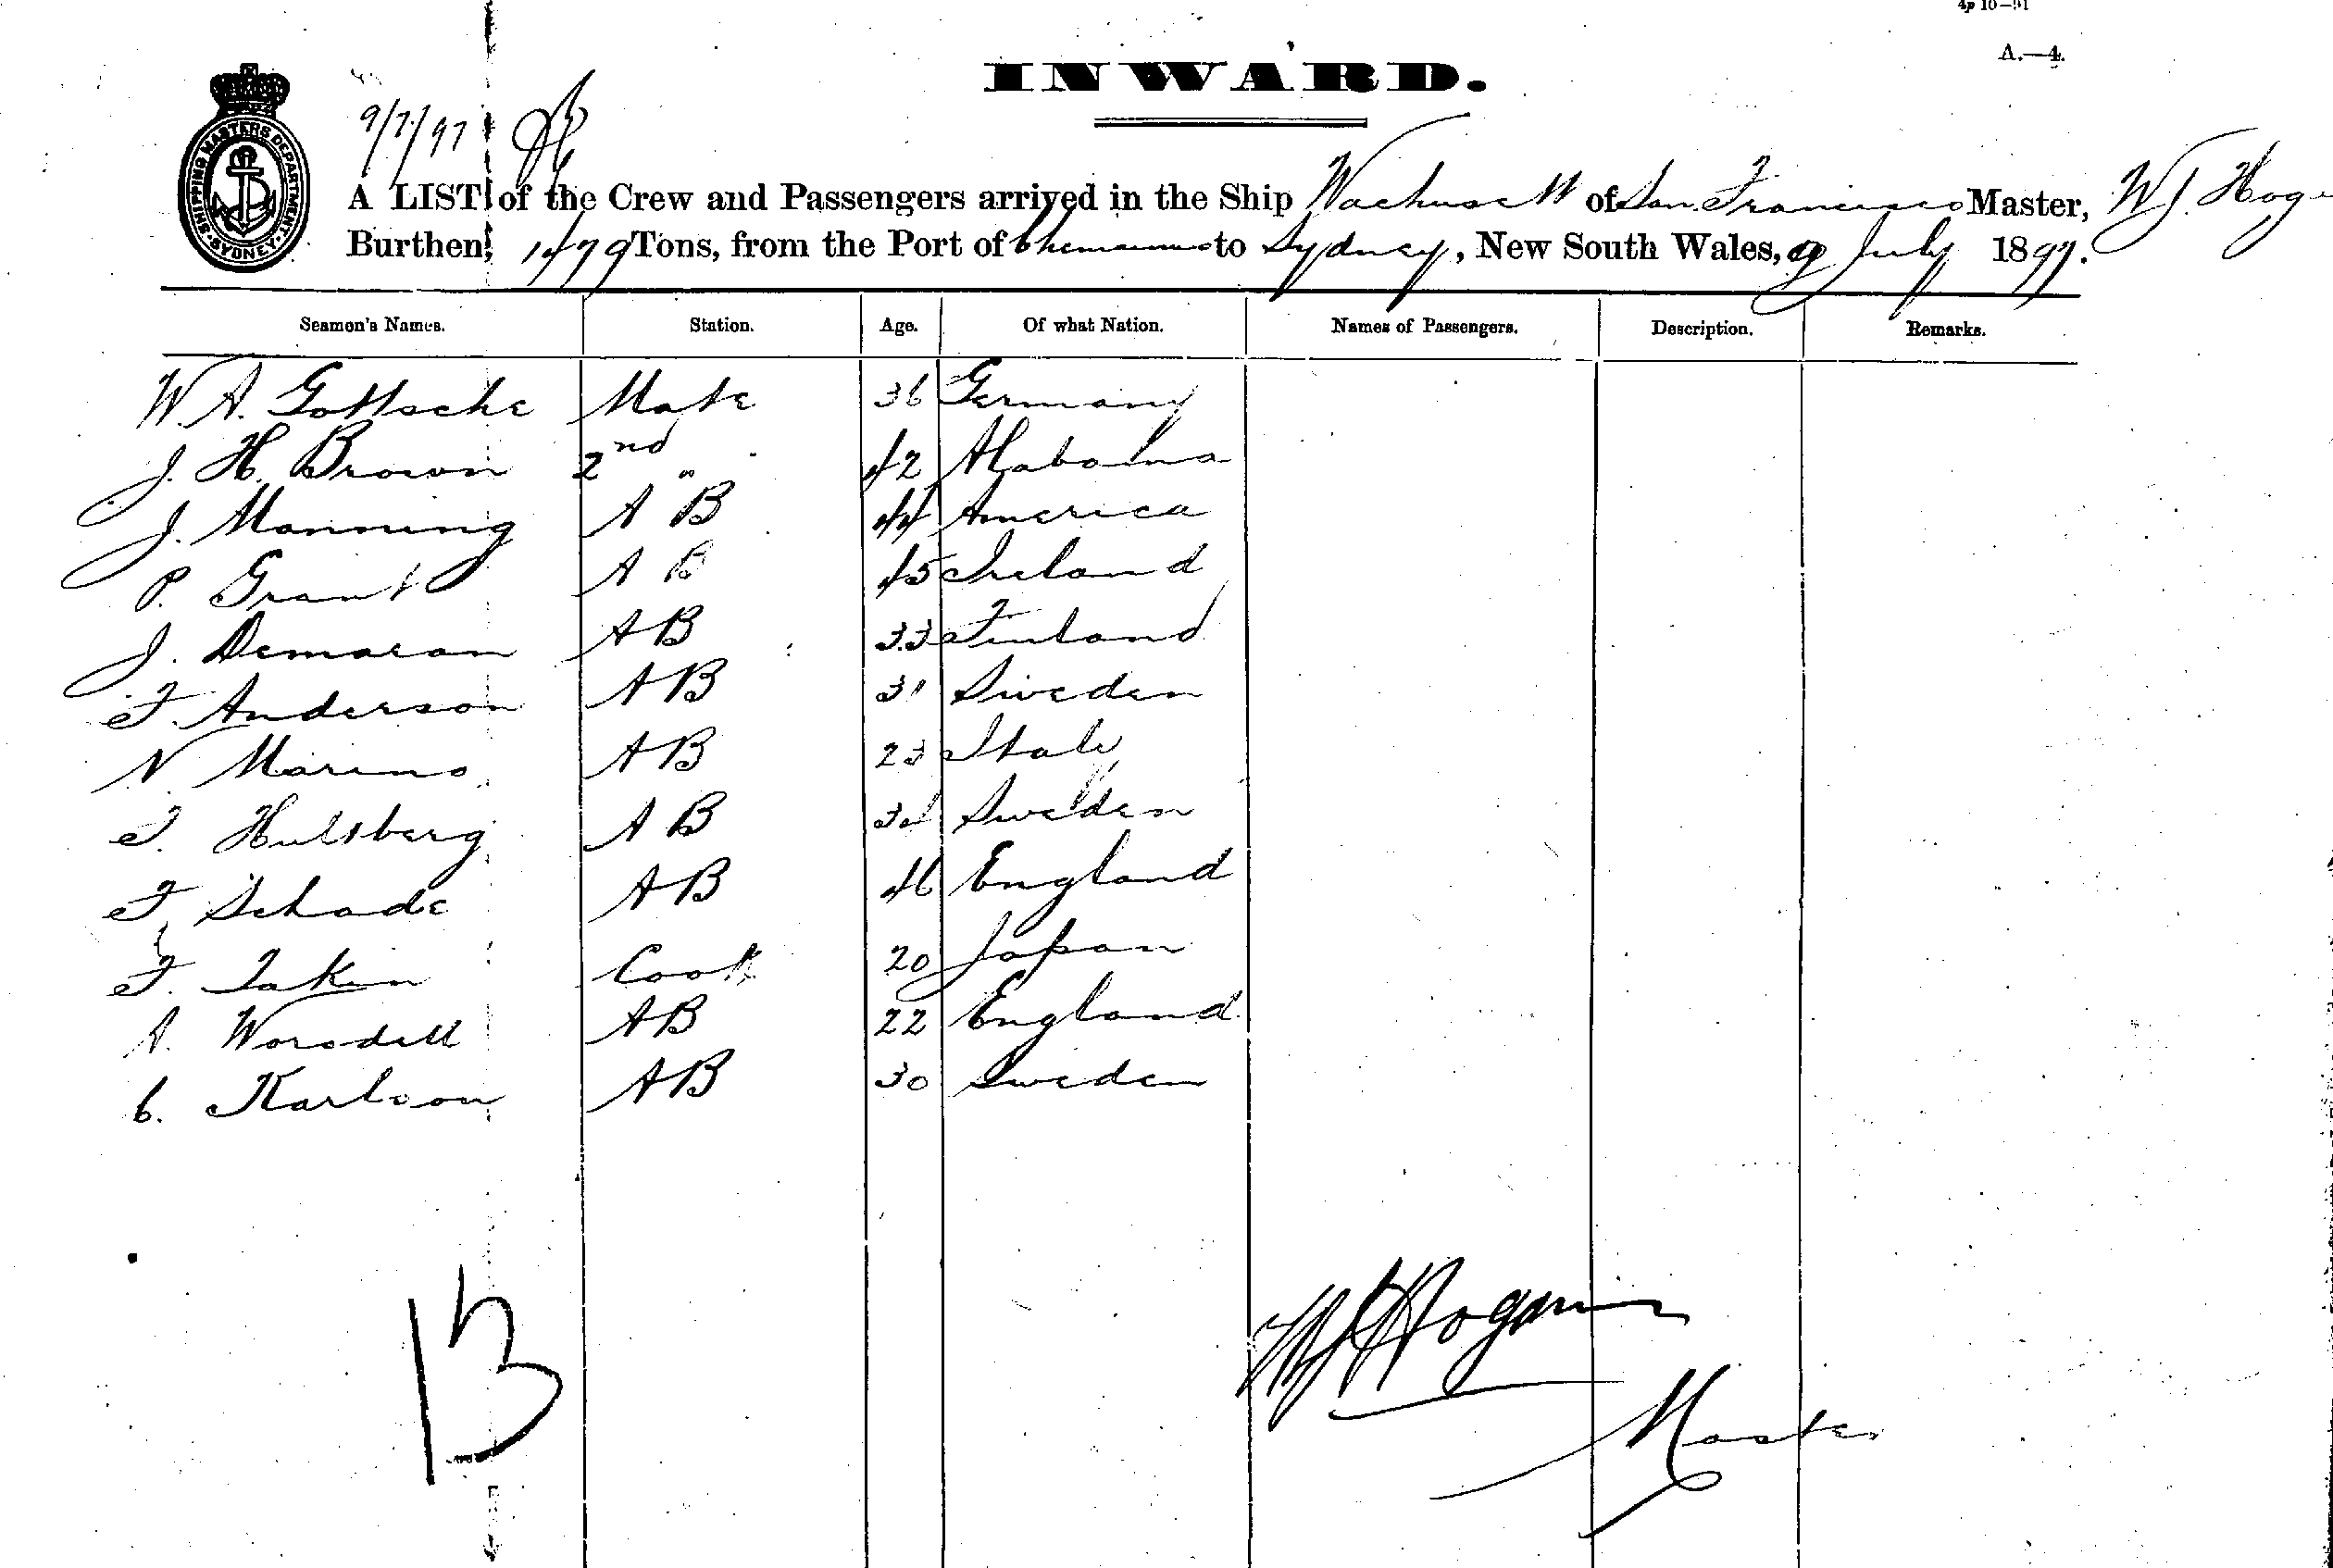 4p 10—91
A.—4.
INWARD.
SHIPPING MASTERS DEPARTMENT
SYDNEY
9/7/97
A LIST of the Crew and Passengers arrived in the Ship Wachusett of San Francisco Master, W J. Hog
Burthen, 1479 Tons, from the Port of Chemainus to Sydney, New South Wales, 9 July 1897.
Seamen's Names. Station. Age. Of what Nation. Names of Passengers. Description. Remarks.
W. A. Gottsche Mate 36 Germany
J. H. Brown 2nd " 42 Alabama
J. Manning A B 44 America
P. Grant A B 45 Ireland
J. Demaran A B 33 Finland
F. Anderson A B 31 Sweden
N Marino A B 23 Italy
F. Hultberg A B Sweden
F. Schade A B 46 England
F. Takin Cook 20 Japan
A. Worsdell A B 22 England
C. Karlson A B 30 Sweden
13
W J Hogan
Master